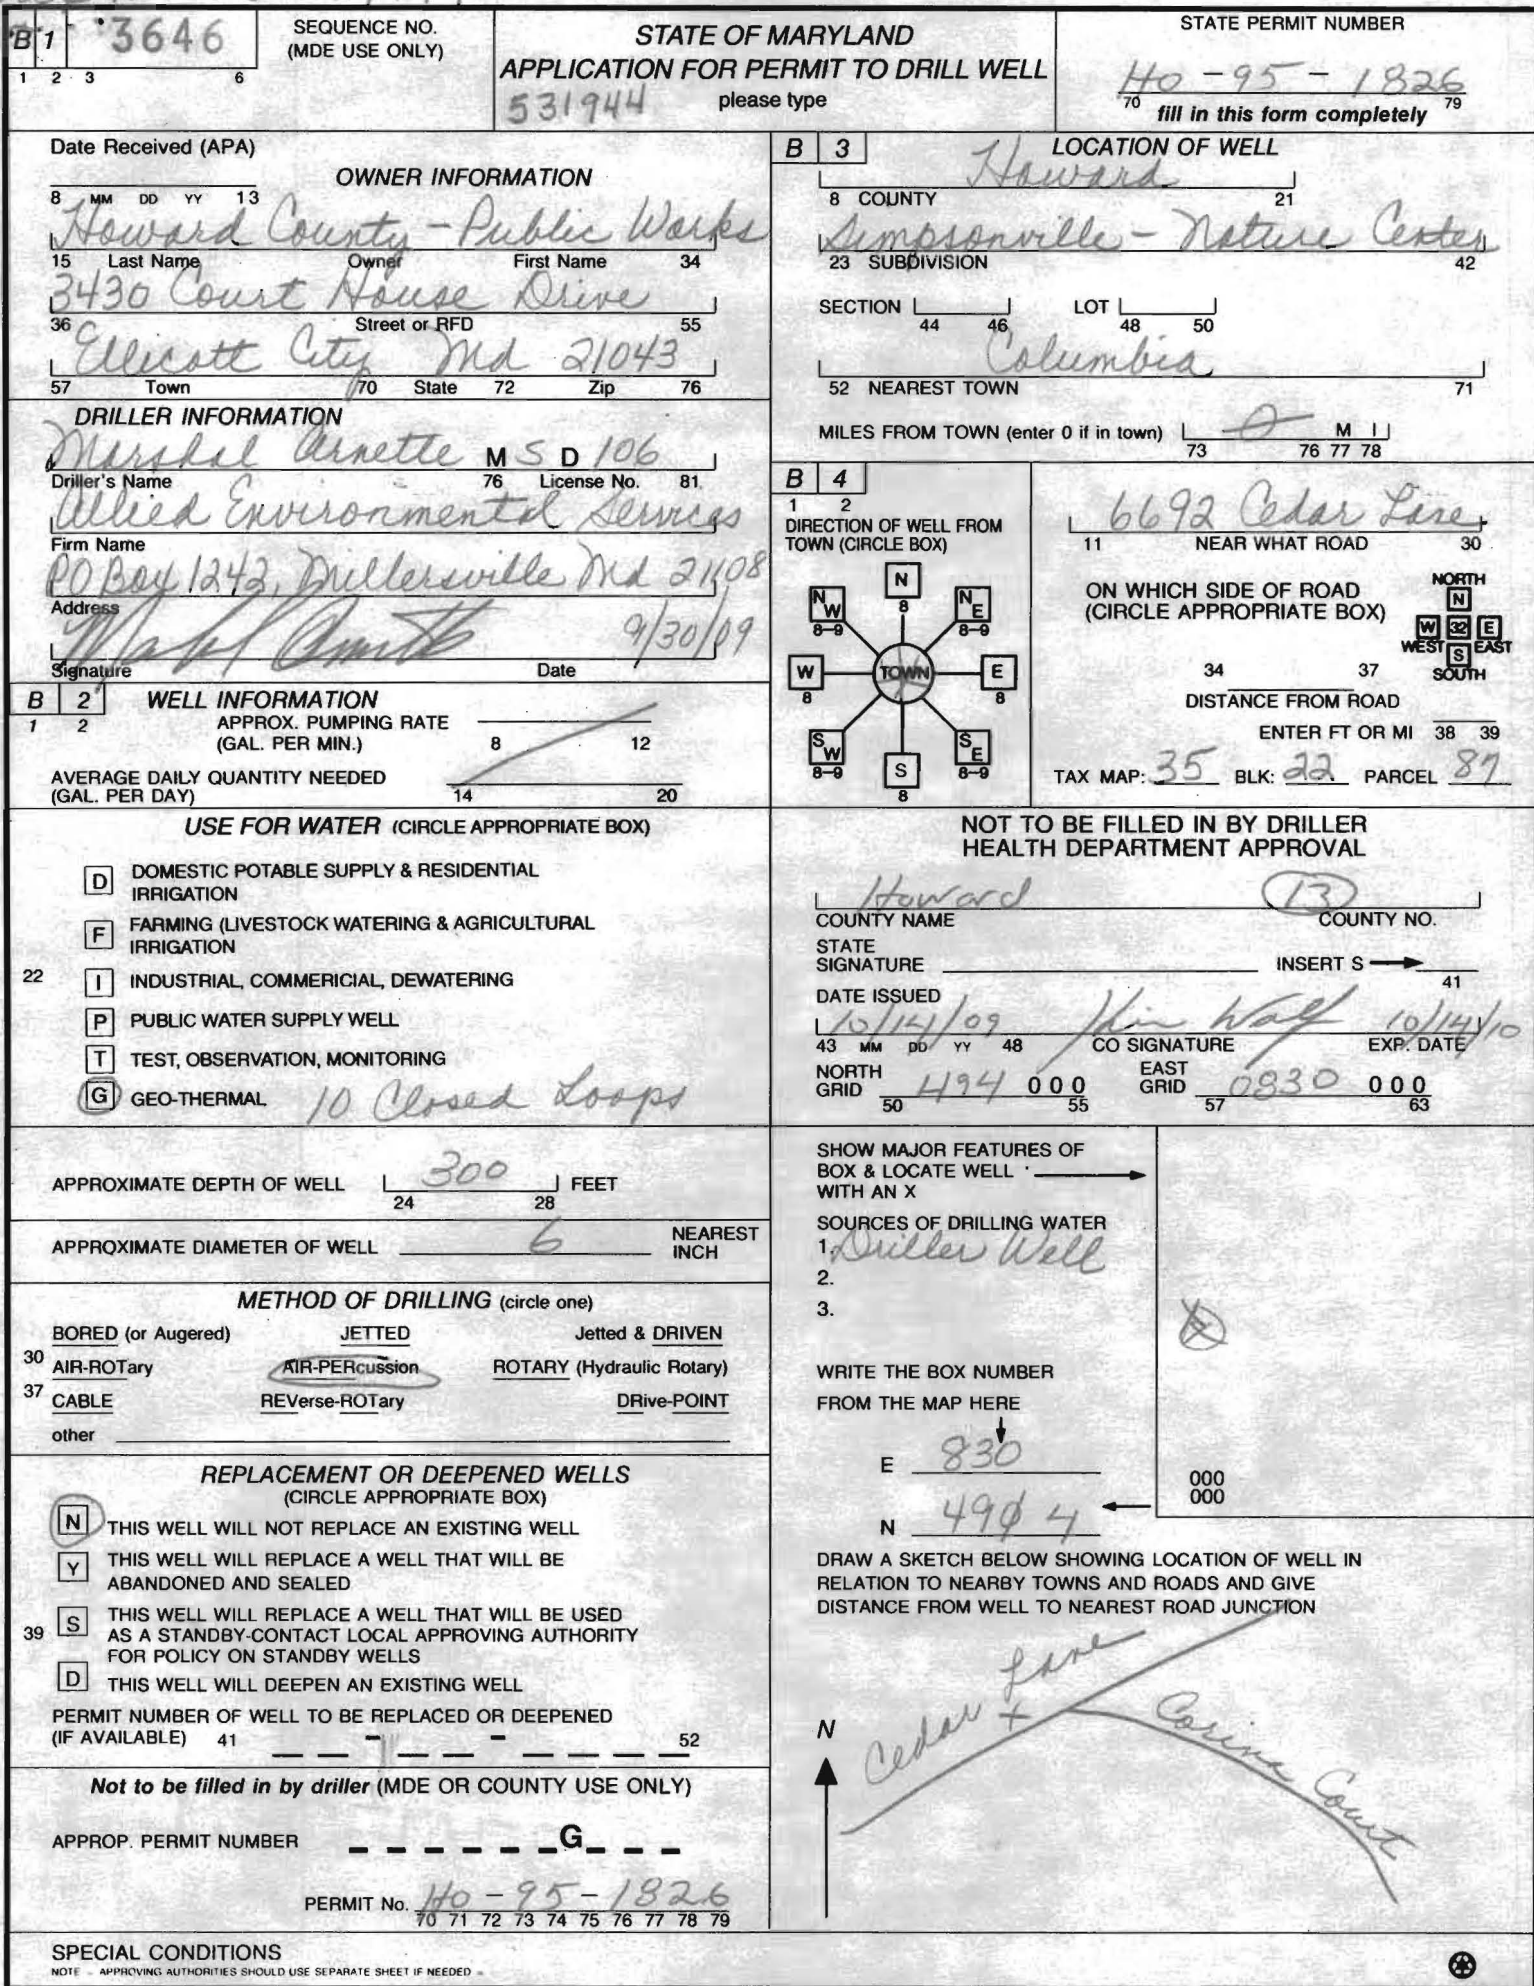 B 1 3646
1 2 3 6
SEQUENCE NO.
(MDE USE ONLY)
STATE OF MARYLAND
APPLICATION FOR PERMIT TO DRILL WELL
531944 please type
STATE PERMIT NUMBER
HO - 95 - 1826
70 79
fill in this form completely
Date Received (APA)
8 MM DD YY 13
OWNER INFORMATION
Howard County - Public Works
15 Last Name Owner First Name 34
3430 Court House Drive
36 Street or RFD 55
Ellicott City Md 21043
57 Town 70 State 72 Zip 76
DRILLER INFORMATION
Marshal Arnette M S D 106
Driller's Name 76 License No. 81
Allied Environmental Services
Firm Name
PO Box 1242, Millersville Md 21108
Address
9/30/09
Signature Date
B 2 WELL INFORMATION
1 2
APPROX. PUMPING RATE
(GAL. PER MIN.) 8 12
AVERAGE DAILY QUANTITY NEEDED
(GAL. PER DAY) 14 20
USE FOR WATER (CIRCLE APPROPRIATE BOX)
D DOMESTIC POTABLE SUPPLY & RESIDENTIAL
IRRIGATION
F FARMING (LIVESTOCK WATERING & AGRICULTURAL
IRRIGATION
22 I INDUSTRIAL, COMMERICIAL, DEWATERING
P PUBLIC WATER SUPPLY WELL
T TEST, OBSERVATION, MONITORING
G GEO-THERMAL 10 Closed Loops
APPROXIMATE DEPTH OF WELL 300 FEET
24 28
APPROXIMATE DIAMETER OF WELL 6 NEAREST
INCH
METHOD OF DRILLING (circle one)
BORED (or Augered) JETTED Jetted & DRIVEN
30 AIR-ROTary AIR-PERcussion ROTARY (Hydraulic Rotary)
37 CABLE REVerse-ROTary DRive-POINT
other
REPLACEMENT OR DEEPENED WELLS
(CIRCLE APPROPRIATE BOX)
N THIS WELL WILL NOT REPLACE AN EXISTING WELL
Y THIS WELL WILL REPLACE A WELL THAT WILL BE
ABANDONED AND SEALED
39 S THIS WELL WILL REPLACE A WELL THAT WILL BE USED
AS A STANDBY-CONTACT LOCAL APPROVING AUTHORITY
FOR POLICY ON STANDBY WELLS
D THIS WELL WILL DEEPEN AN EXISTING WELL
PERMIT NUMBER OF WELL TO BE REPLACED OR DEEPENED
(IF AVAILABLE) 41 - - 52
Not to be filled in by driller (MDE OR COUNTY USE ONLY)
APPROP. PERMIT NUMBER G
PERMIT No. HO - 95 - 1826
70 71 72 73 74 75 76 77 78 79
SPECIAL CONDITIONS
NOTE - APPROVING AUTHORITIES SHOULD USE SEPARATE SHEET IF NEEDED -
B 3 LOCATION OF WELL
Howard
8 COUNTY 21
Simpsonville - Nature Center
23 SUBDIVISION 42
SECTION LOT
44 46 48 50
Columbia
52 NEAREST TOWN 71
MILES FROM TOWN (enter 0 if in town) 0 M I
73 76 77 78
B 4
1 2
DIRECTION OF WELL FROM
TOWN (CIRCLE BOX)
N
8
NW NE
8-9 8-9
W TOWN E
8 8
SW SE
8-9 8-9
S
8
6692 Cedar Lane
11 NEAR WHAT ROAD 30
ON WHICH SIDE OF ROAD
(CIRCLE APPROPRIATE BOX)
NORTH
N
W 32 E
WEST S EAST
SOUTH
34 37
DISTANCE FROM ROAD
ENTER FT OR MI 38 39
TAX MAP: 35 BLK: 22 PARCEL 87
NOT TO BE FILLED IN BY DRILLER
HEALTH DEPARTMENT APPROVAL
Howard 13
COUNTY NAME COUNTY NO.
STATE
SIGNATURE INSERT S
41
DATE ISSUED
10/14/09 10/14/10
43 MM DD YY 48 CO SIGNATURE EXP. DATE
NORTH
GRID 494 000
50 55
EAST
GRID 0830 000
57 63
SHOW MAJOR FEATURES OF
BOX & LOCATE WELL
WITH AN X
SOURCES OF DRILLING WATER
1. Driller Well
2.
3.
WRITE THE BOX NUMBER
FROM THE MAP HERE
E 830
N 490 4
000
000
DRAW A SKETCH BELOW SHOWING LOCATION OF WELL IN
RELATION TO NEARBY TOWNS AND ROADS AND GIVE
DISTANCE FROM WELL TO NEAREST ROAD JUNCTION
N
Cedar Lane
X
Corina Court